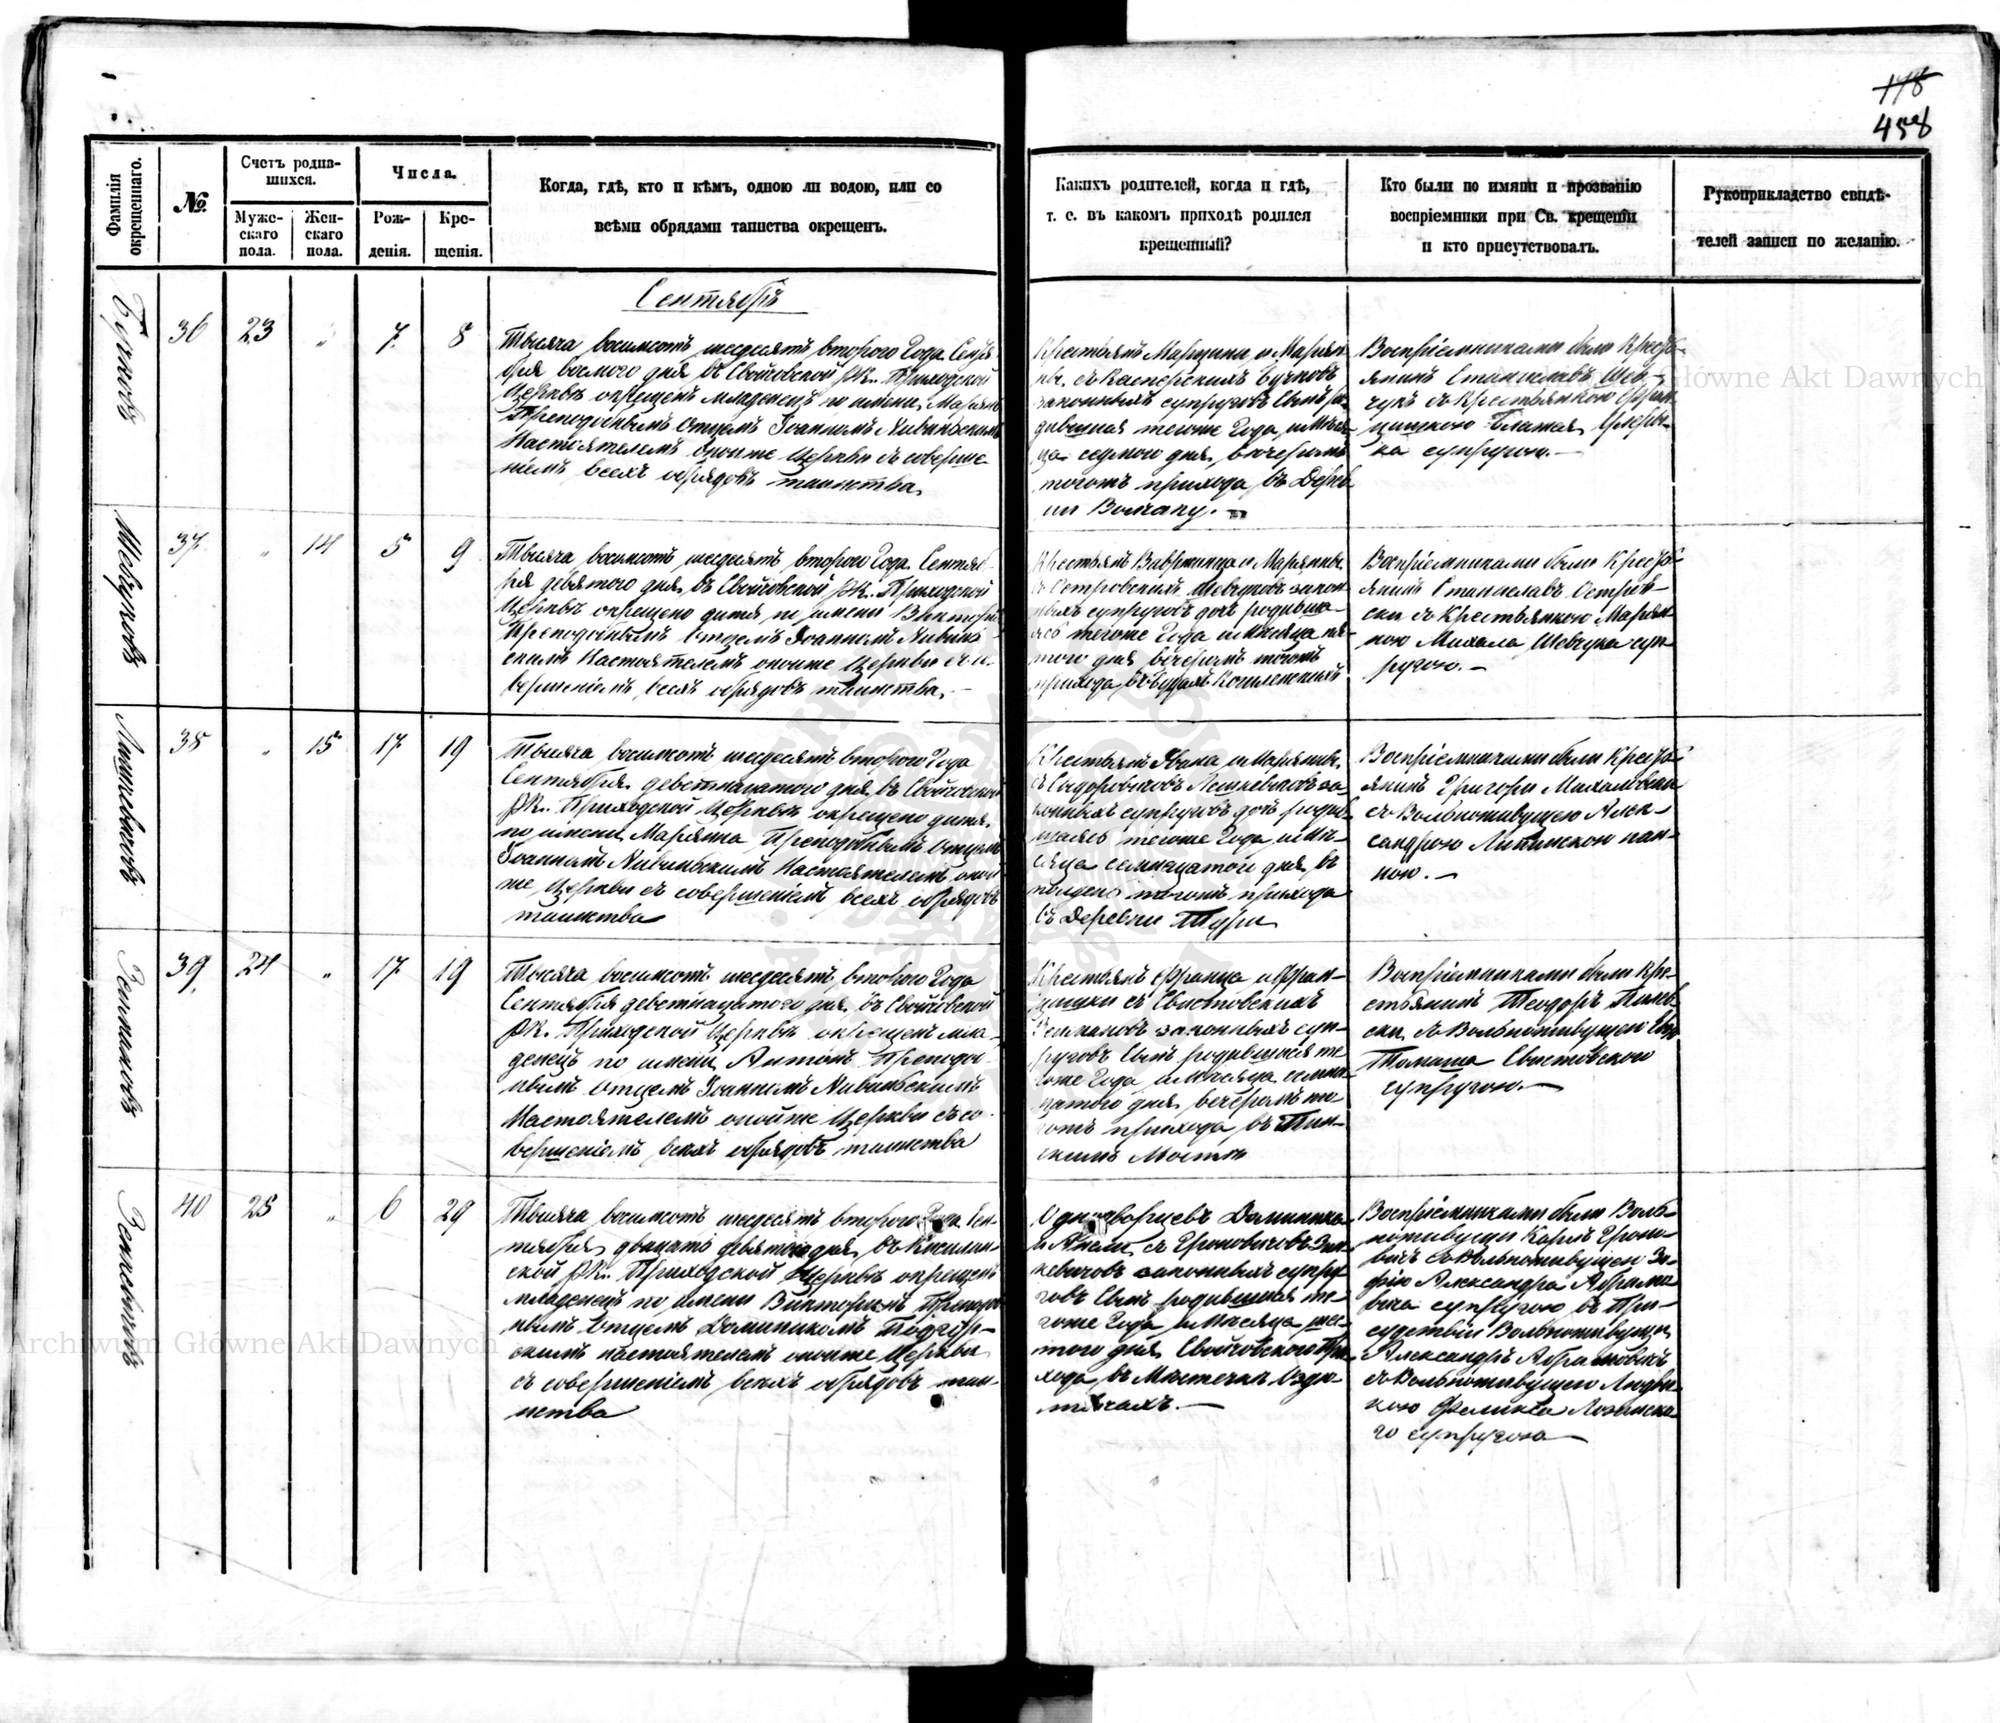 178
458
Фамилія окрещеннаго.
№.
Счетъ родив-
шихся.
Муже-
скаго
пола.
Жен-
скаго
пола.
Числа.
Рож-
денія.
Кре-
щенія.
Когда, гдѣ, кто и кѣмъ, одною ли водою, или со
всѣми обрядами таинства окрещенъ.
Какихъ родителей, когда и гдѣ,
т. е. въ какомъ приходѣ родился
крещенный?
Кто были по имяни и прозванію
воспріемники при Св. крещеніи
и кто присутствовалъ.
Рукоприкладство свидѣ-
телей записи по желанію.
Сентябрь
36 23 " 7. 8
Тысяча восимсотъ шесдесятъ второго Года Сентя
бря восмого дня въ Свойчовской РК.. Приходской
Церквѣ окрещенъ младенецъ по имени Марьянъ
Преподобнымъ Отцемъ Іоанномъ
Настоятелемъ оноиже Церкви съ соверше-
ніемъ всехъ обрядовъ таинства.
Крестьянъ Марцина и Марьян-
ны съ Касперскихъ Бучковъ
законныхъ супруговъ Сынъ ро-
дившися тогоже Года и Мѣся-
ца седмого дня, вечеромъ
тогожъ прихода въ Дерев
ни
Воспріемниками были Кресть-
янинъ Станиславъ Шев-
чукъ съ Крестьянкою Фран-
цишкою Блажея
ка супругою.—
Шевчуковъ
37. " 14 5 9
Тысяча восимсотъ шесдесятъ второго Года Сентяб-
ря девятого дня, въ Свойчовской РК.. Приходской
Церквѣ окрещено дитя по имени Викторія
Преподобнымъ Отцемъ Іоанномъ
скимъ Настоятелемъ оноиже Церкви съ со-
вершеніемъ всехъ обрядовъ таинства.—
Крестьянъ Вавржинца и Марьянны
съ Островскихъ Шевчуковъ закон-
ныхъ супруговъ дочь родивша-
яся тогоже Года и Мѣсяца пя-
того дня вечеромъ тогожъ
прихода,
Воспріемниками были Кресть-
янинъ Станиславъ Остров-
ски съ Крестьянкою Марьян-
ною Михала Шевчука суп-
ругою.—
38 " 15 17 19
Тысяча восимсотъ шесдесятъ второго Года
Сентября девятнацатого дня, въ Свойчовской
РК.. Приходской Церквѣ окрещено дитя
по имени Марьянна Преподобнымъ Отцемъ
Іоанномъ Настоятелемъ оной-
же Церкви съ совершеніемъ всехъ обрядовъ
таинства
Крестьянъ Яана и Марьянны
законныхъ супруговъ дочь родив-
шаяся тогоже Года и Мѣ-
сяца семнацатого дня, въ
тогожъ прихода
въ Деревни Туры
Воспріемниками были Кресть-
янинъ Григори Михаловски
съ Вольноживущею Алек-
сандрою Липинскою пан-
ною.—
39. 24 " 17. 19
Тысяча восимсотъ шесдесятъ второго Года
Сентября девятнацатого дня, въ Свойчовской
РК.. Приходской Церквѣ окрещенъ мла-
денецъ по имени Антонъ Преподоб-
нымъ Отцемъ Іоанномъ
Настоятелемъ онойже Церкви съ со-
вершеніемъ всехъ обрядовъ таинства
Крестьянъ Франца и Фран-
цишки съ Свистовскихъ
законныхъ суп-
руговъ Сынъ родившися то-
гоже Года и Мѣсяца семна-
цатого дня, вечеромъ то-
гожъ прихода, въ
Воспріемниками были Кре-
стьянинъ Теодоръ
ски, съ Вольноживущею
Томаша Свистовского
супругою.—
Зенкевичъ
40 25 " 6 29
Тысяча восимсотъ шесдесятъ второго Года Сен-
тября, двацать девятого дня, въ Кисилин-
ской РК.. Приходской Церквѣ окрещенъ
младенецъ по имени Викторинъ Преподоб-
нымъ Отцемъ Доминикомъ Подгур-
скимъ настоятелемъ оноиже Церкви
съ совершеніемъ всехъ обрядовъ таин-
ства
Однодворцевъ Доминика
и Анели съ Гроновичовъ Зен-
кевичовъ законныхъ супру-
говъ Сынъ родившися то-
гоже Года и Мѣсяца шес-
того дня Свойчовского При-
хода, въ Мястечкѣ Оздю-
тичахъ.—
Воспріемниками были Воль-
ноживущи Кароль Гроно-
вичъ съ Вольноживущею Зо-
фіею Александра Абрамо-
вича супругою, въ При-
судствіи Вольноживущи
Александръ Абрамовичъ
съ Вольноживущею Людви-
кою Феликса Лозинска-
го супругою—
Archiwum Główne Akt Dawnych
Archiwum Główne Akt Dawnych